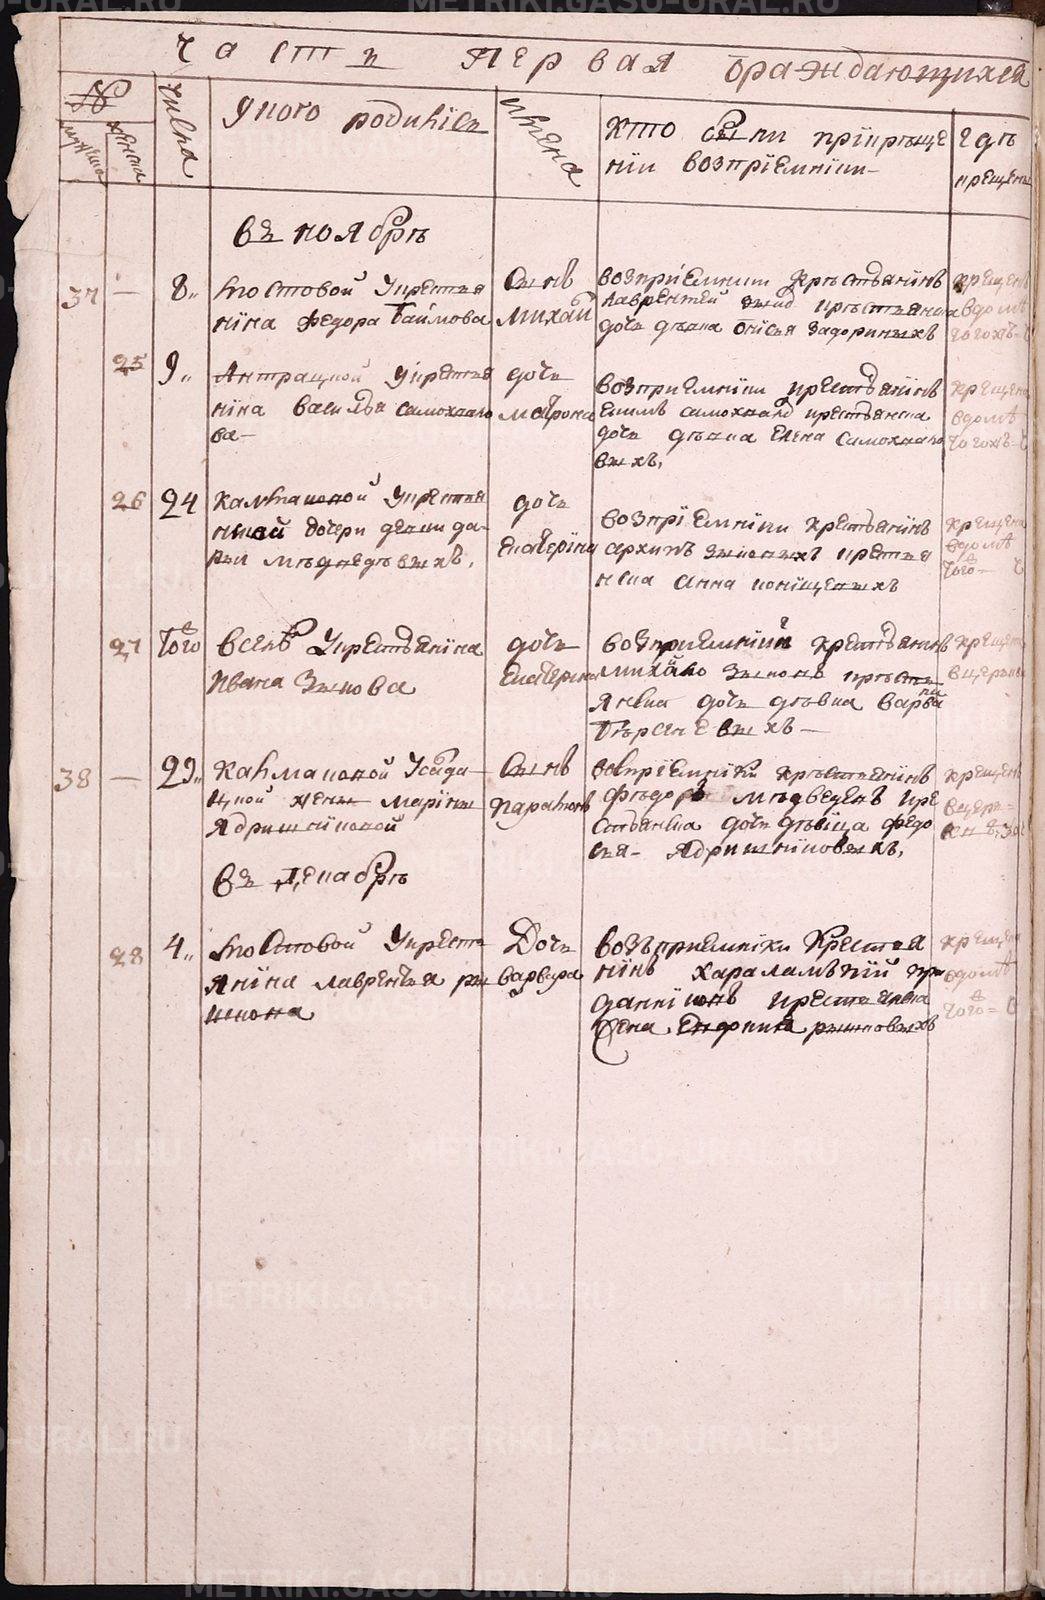 Часть первая ораждающихся
№
мужеска
женска
числа
У кого родились
имена
кто были при креще
нии восприемники
где
крещены
въ ноябрѣ
37 — 8
Мостовой У крестья
нина Федора Таимова
Сынъ
Михаи
возприемники Крѣстьянинъ
лаврентей зыко крѣстьянска
дочь дѣвка Онисья Задориныхъ
крещенъ
вдомѣ
тогожъ
25 9
У крестья
нина Василья самохвало
ва
дочь
матрона
возприемники крестьянинъ
самохвало крестьянска
дочь дѣвка Елена Самохвало
выхъ,
крещена
вдомѣ
тогожъ
26 24
Калмаковой У крестья
нской дочери девки да
рьи мѣдведѣвыхъ,
дочь
Екатерина
возприемники крестьянинъ
архипъ зыковыхъ крестья
нска анна
крещена
вдомѣ
того
27 того
всенъ У крестьянина
Ивана Зыкова
дочь
Екатерина
возприемники крестьянинъ
михайло Зыковъ крѣсть
янска дочь дѣвка варва
выхъ —
крещена
вцеркви
38 — 29
Калмаковой Усада
цкой жены Марины
Ядрышниковой
Сынъ
Парамонъ
восприемники крѣстьянинъ
фѣдоръ мѣдведевъ кре
стьянска дочь дѣвица федо
сья Ядрышниковыхъ,
крещенъ
вцерк
въ декабрѣ
28 4
Мостовой У кресть
янина лаврентья ры
шкова
Дочь
варвара
возъприемники Крестья
нинъ харалампий при
данниковъ крестьянска
жена рышковыхъ
крещена
вдомѣ
того